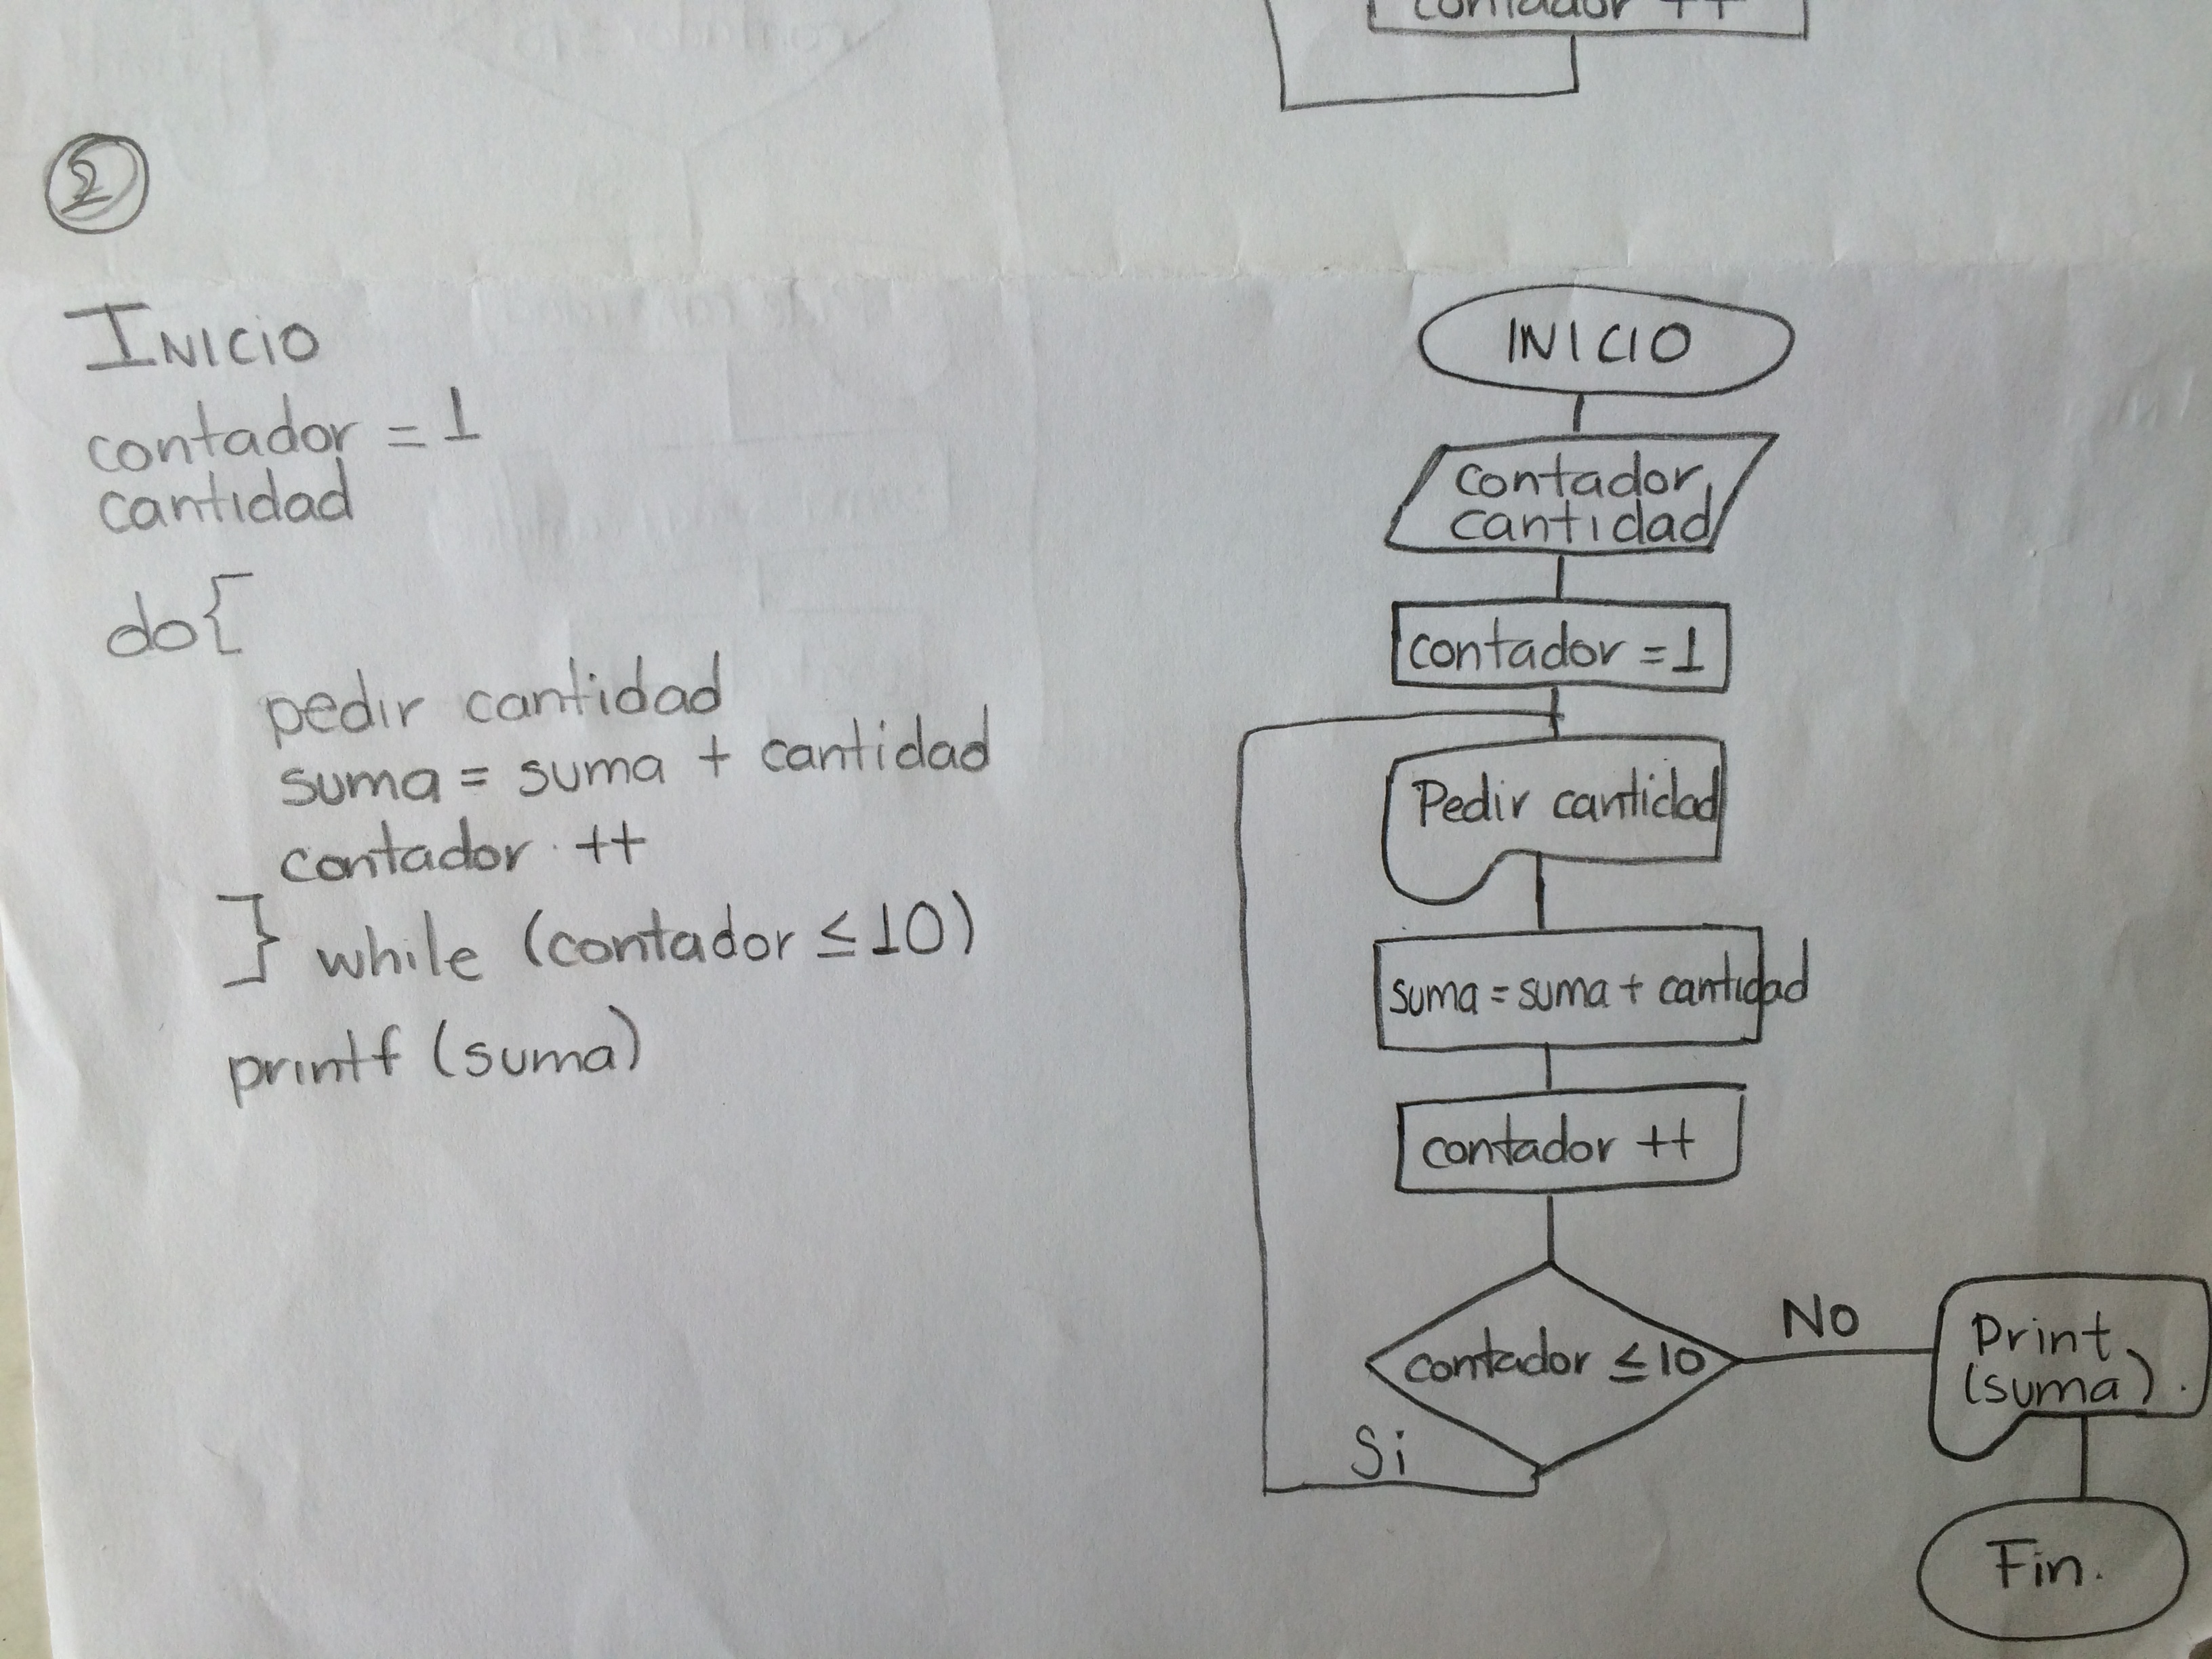 contador ++
2
INICIO
contador = 1
cantidad
do{
pedir cantidad
suma = suma + cantidad
contador ++
} while (contador ≤ 10)
printf (suma)
INICIO
contador,
cantidad
contador = 1
Pedir cantidad
suma = suma + cantidad
contador ++
contador ≤ 10
NO
Si
Print
(suma).
Fin.